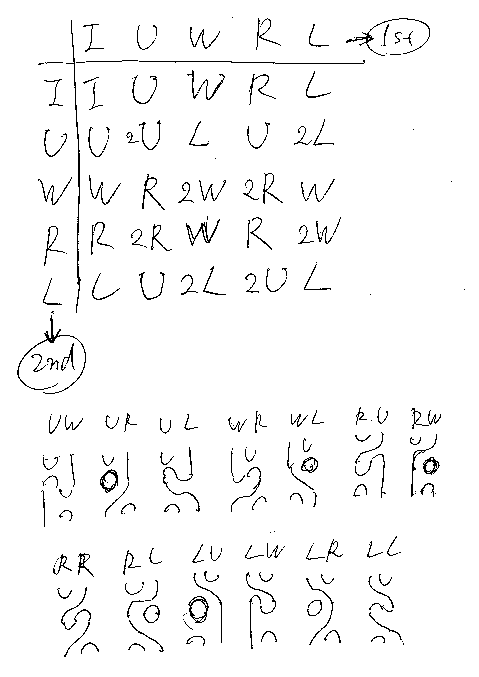 I U W R L → 1st
I I U W R L
U U 2U L U 2L
W W R 2W 2R W
R R 2R W R 2W
L L U 2L 2U L
2nd
UW UR UL WR WL RU RW
RR RL LU LW LR LL